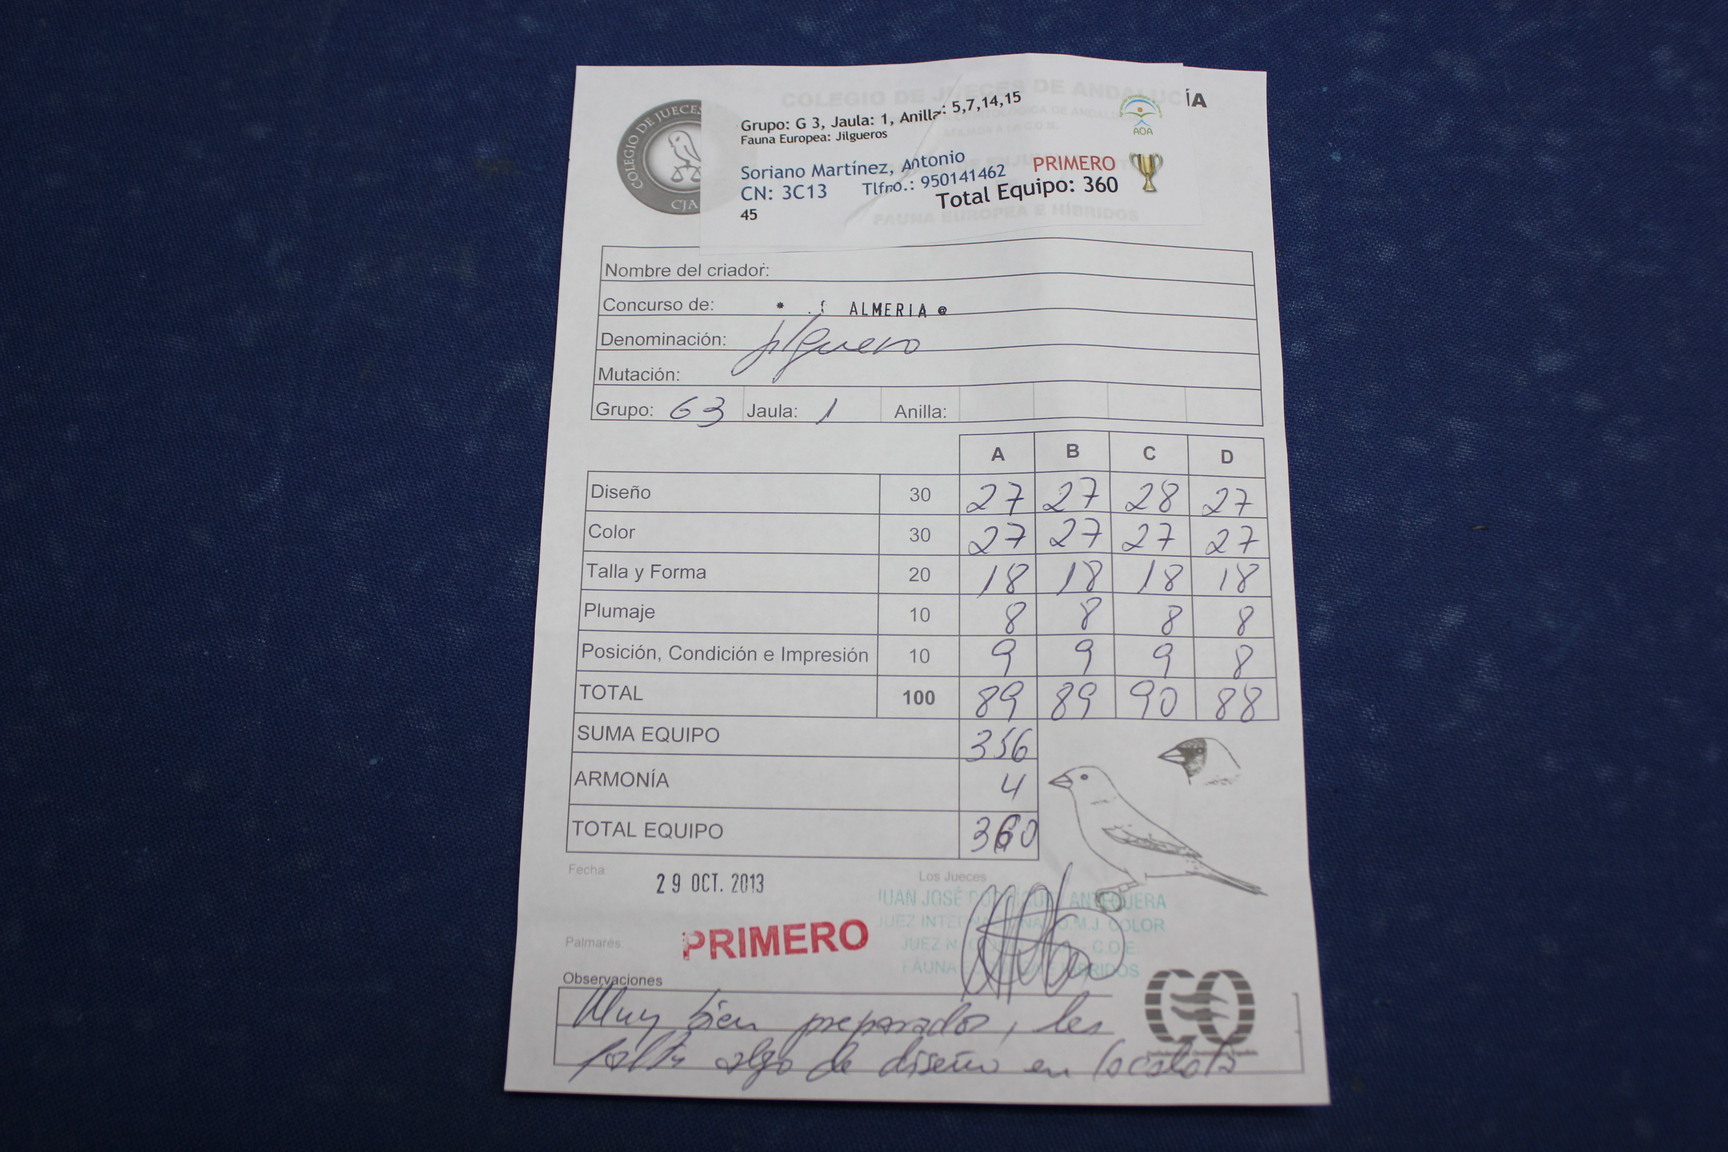 COLEGIO DE JUECES
CJA
COLEGIO DE JUECES DE ANDALUCÍA
Grupo: G 3, Jaula: 1, Anilla: 5,7,14,15
Fauna Europea: Jilgueros
AOA
Soriano Martínez, Antonio PRIMERO
CN: 3C13 Tlfno.: 950141462
Total Equipo: 360
45
FAUNA EUROPEA E HÍBRIDOS
Nombre del criador:
Concurso de: ALMERIA
Denominación: Jilguero
Mutación:
Grupo: G3 Jaula: 1 Anilla:
A B C D
Diseño 30 27 27 28 27
Color 30 27 27 27 27
Talla y Forma 20 18 18 18 18
Plumaje 10 8 8 8 8
Posición, Condición e Impresión 10 9 9 9 8
TOTAL 100 89 89 90 88
SUMA EQUIPO 356
ARMONÍA 4
TOTAL EQUIPO 360
Fecha 29 OCT. 2013
Los Jueces
JUAN JOSÉ
COLOR
C.O.E.
FAUNA HÍBRIDOS
Palmares PRIMERO
Observaciones
Muy bien preparados, les
falta algo de diseño en